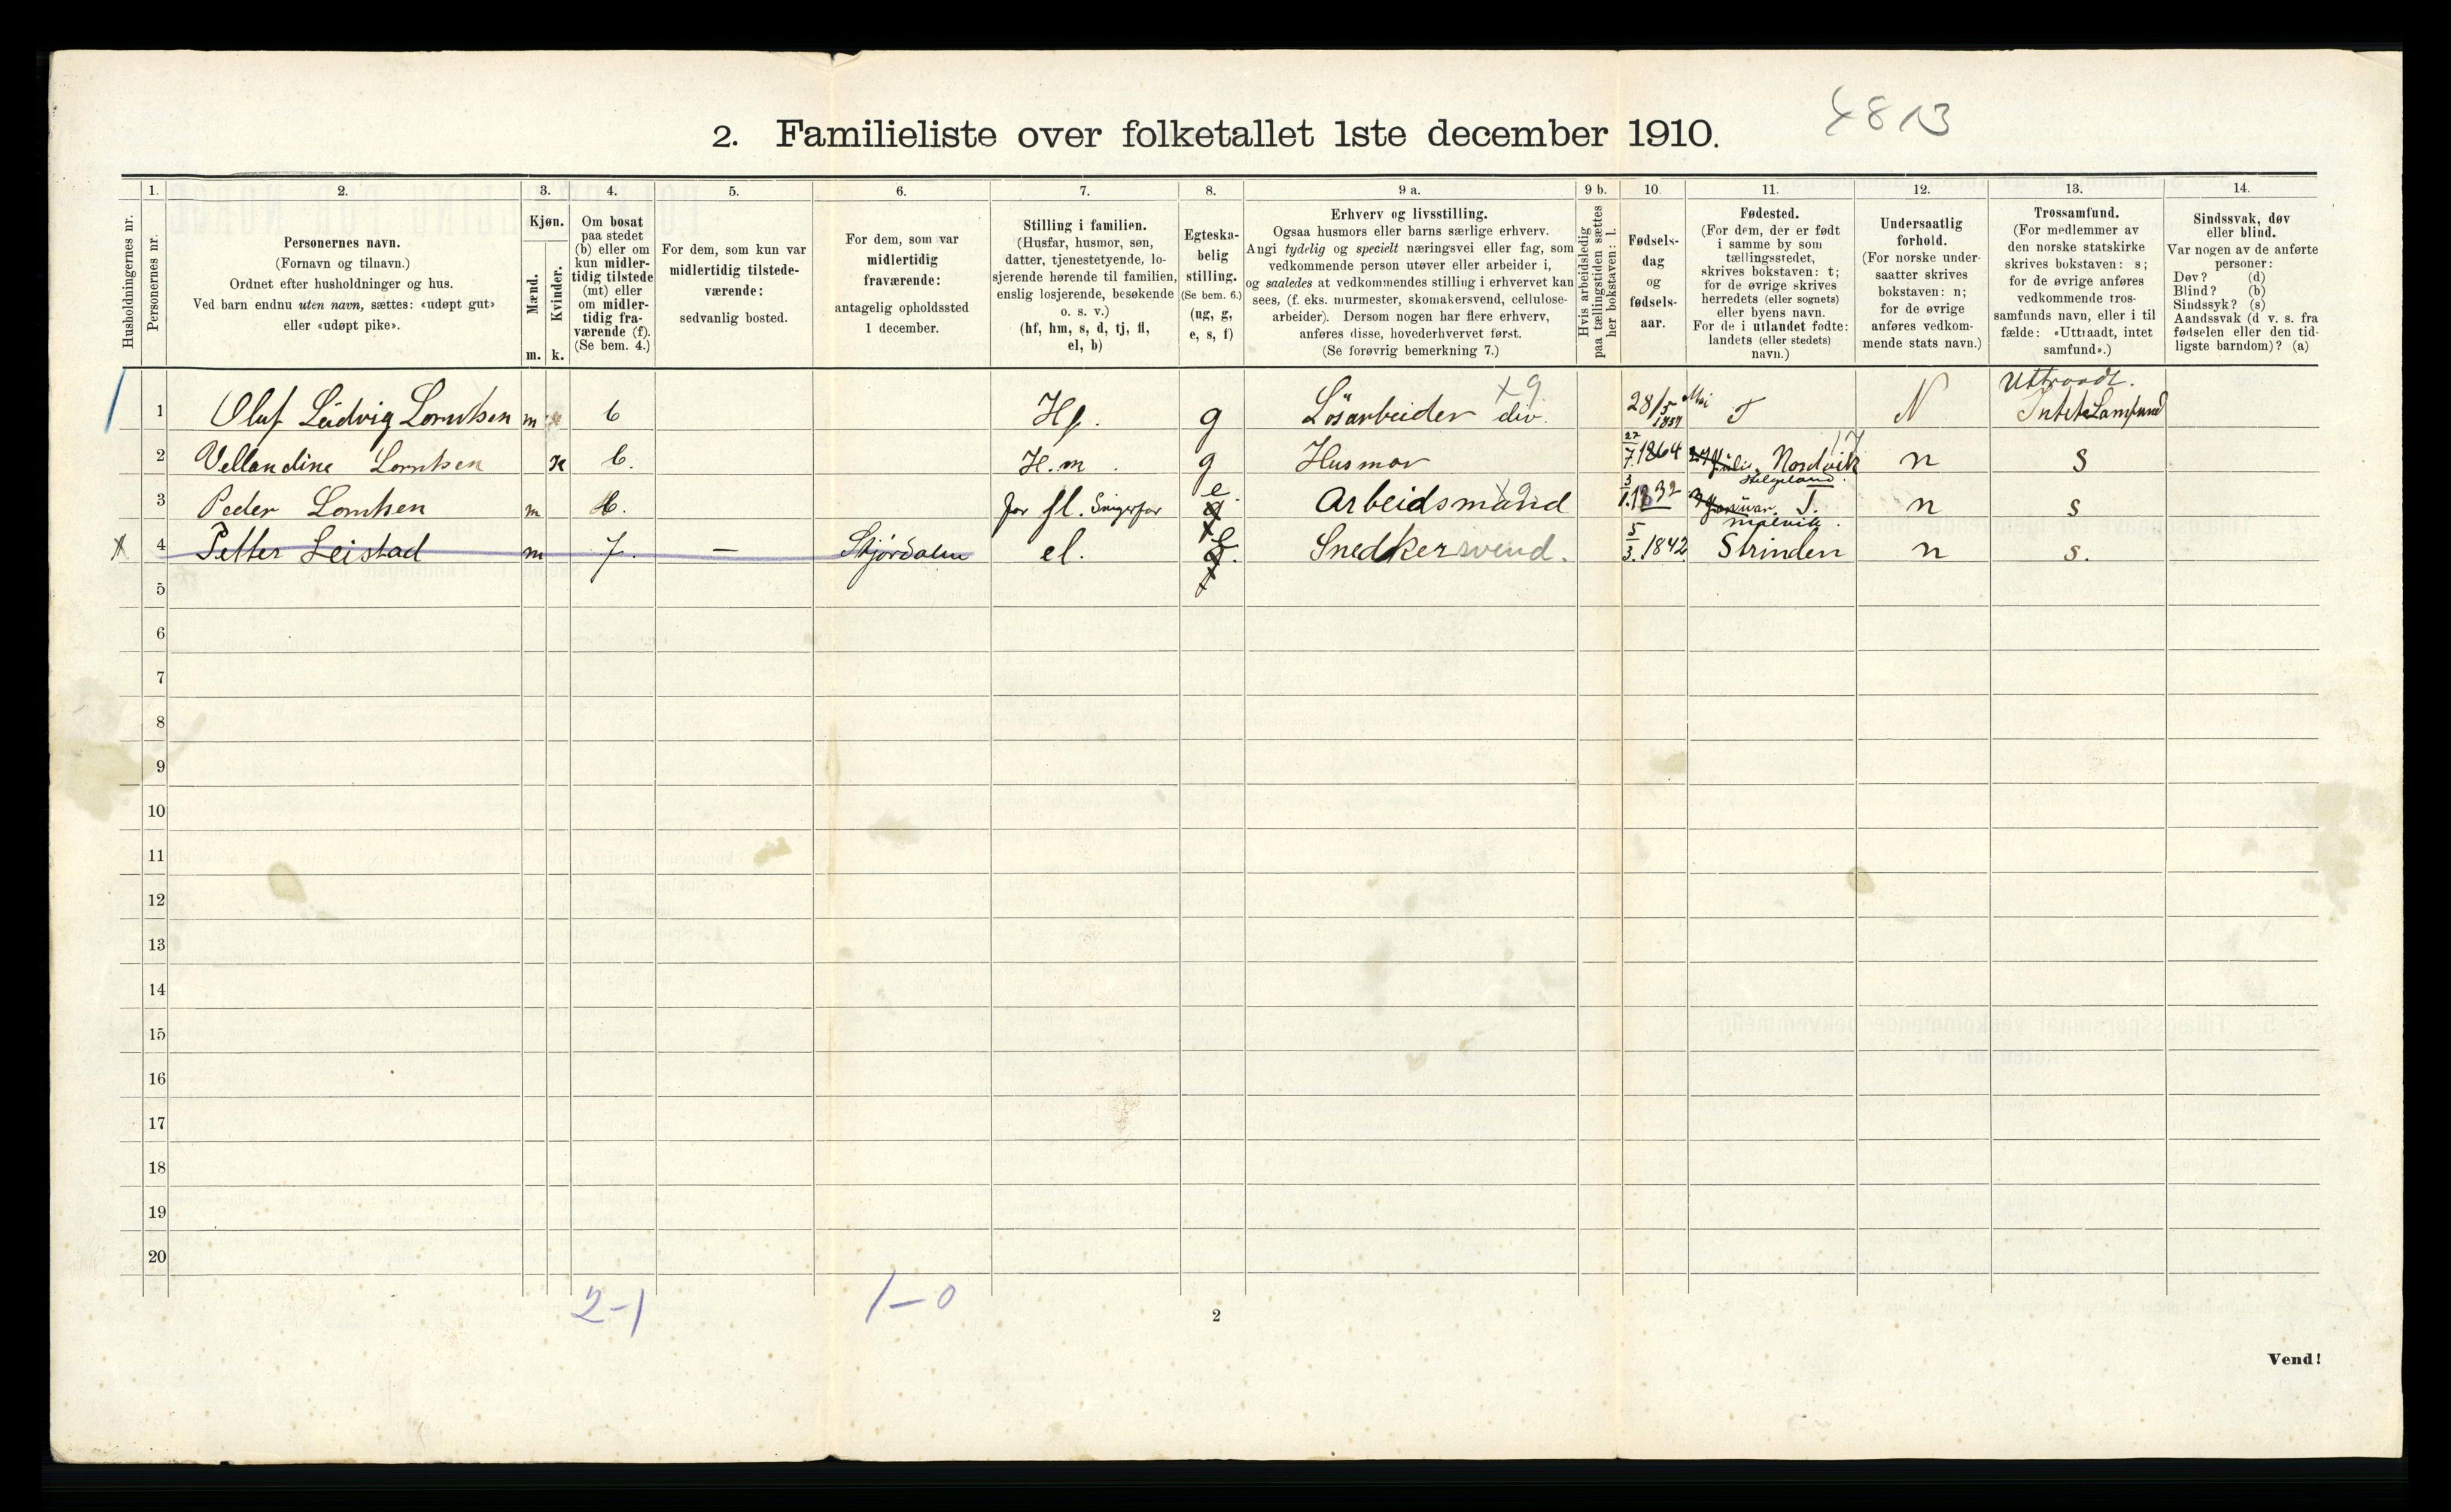 4813
2. Familieliste over folketallet 1ste december 1910.
Husholdningernes nr.
1.
Personernes nr.
2.
Personernes navn.
(Fornavn og tilnavn.)
Ordnet efter husholdninger og hus.
Ved barn endnu uten navn, sættes: «udøpt gut»
eller «udøpt pike».
3.
Kjøn.
Mænd.
Kvinder.
m. k.
4.
Om bosat
paa stedet
(b) eller om
kun midler-
tidig tilstede
(mt) eller
om midler-
tidig fra-
værende (f).
(Se bem. 4.)
5.
For dem, som kun var
midlertidig tilstede-
værende:
sedvanlig bosted.
6.
For dem, som var
midlertidig
fraværende:
antagelig opholdssted
1 december.
7.
Stilling i familien.
(Husfar, husmor, søn,
datter, tjenestetyende, lo-
sjerende hørende til familien,
enslig losjerende, besøkende
o. s. v.)
(hf, hm, s, d, tj, fl,
el, b)
8.
Egteska-
belig
stilling.
(Se bem. 6.)
(ug, g,
e, s, f)
9 a.
Erhverv og livsstilling.
Ogsaa husmors eller barns særlige erhverv.
Angi tydelig og specielt næringsvei eller fag, som
vedkommende person utøver eller arbeider i,
og saaledes at vedkommendes stilling i erhvervet kan
sees, (f. eks. murmester, skomakersvend, cellulose-
arbeider). Dersom nogen har flere erhverv,
anføres disse, hovederhvervet først.
(Se forøvrig bemerkning 7.)
9 b.
Hvis arbeidsledig
paa tællingstiden sættes
her bokstaven: l.
10.
Fødsels-
dag
og
fødsels-
aar.
11.
Fødested.
(For dem, der er født
i samme by som
tællingsstedet,
skrives bokstaven: t;
for de øvrige skrives
herredets (eller sognets)
eller byens navn.
For de i utlandet fødte:
landets (eller stedets)
navn.)
12.
Undersaatlig
forhold.
(For norske under-
saatter skrives
bokstaven: n;
for de øvrige
anføres vedkom-
mende stats navn.)
13.
Trossamfund.
(For medlemmer av
den norske statskirke
skrives bokstaven: s;
for de øvrige anføres
vedkommende tros-
samfunds navn, eller i til
fælde: «Uttraadt, intet
samfund».)
14.
Sindssvak, døv
eller blind.
Var nogen av de anførte
personer:
Døv? (d)
Blind? (b)
Sindssyk? (s)
Aandssvak (d v. s. fra
fødselen eller den tid-
ligste barndom)? (a)
1 Oluf Ludvig Lorntsen m b Hf. g Lösarbeider div. x9 28/5 Mai T N Uttraadt. Intet Samfund
2 Vellandine Lorntsen k b. H.m. g Husmor 27/7 1864 Nordvik Helgeland. 17 n s
3 Peder Lorntsen m b. far fl. Svigerfar e. Arbeidsmand x9 3/1. 1832 Januar. T. n s
x 4 Petter Leistad m f. — Stjørdalen el. e Snedkersvend. 5/3. 1842 Malvik. Strinden n s.
5
6
7
8
9
10
11
12
13
14
15
16
17
18
19
20
2-1
1-0
2
Vend!